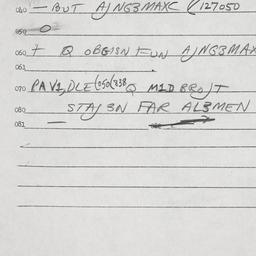 040 — BUT AJNG3MAXC (127050
050 O
060 + Q OBGISN FUN AJNG3MAX
061
070 PAV1,DLE(050(338 Q M1D BROJT
080 STAJ3N FAR AL3MEN
081 —